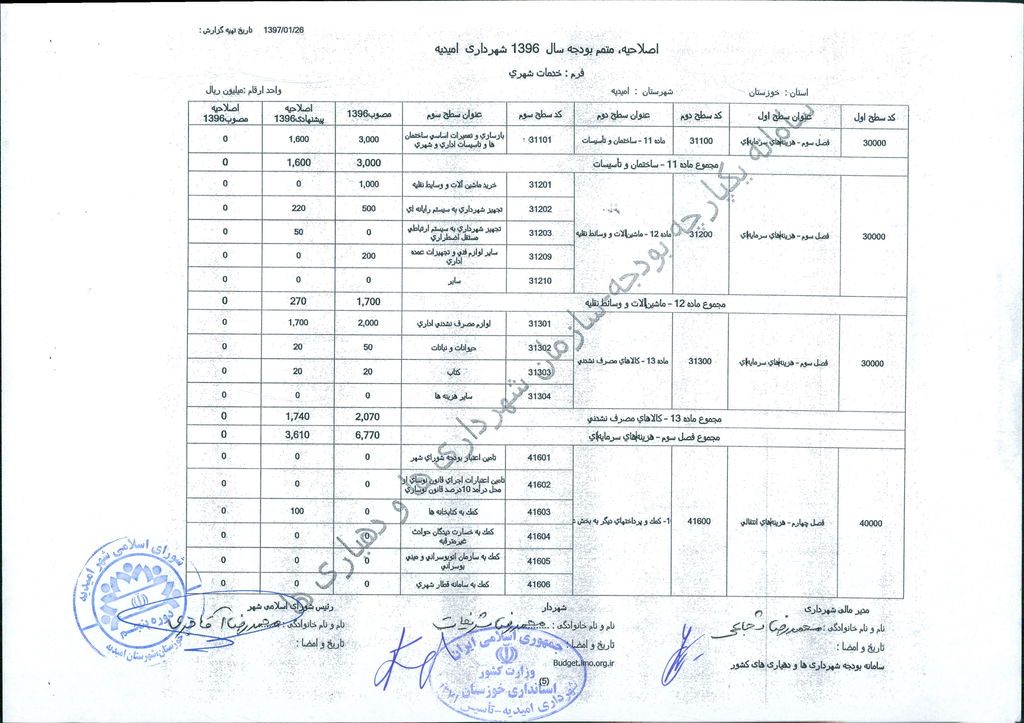 تاریخ تهیه گزارش : 1397/01/26
اصلاحیه، متمم بودجه سال 1396 شهرداری امیدیه
فرم : خدمات شهري
استان : خوزستان شهرستان : امیدیه واحد ارقام :میلیون ریال
کد سطح اول عنوان سطح اول کد سطح دوم عنوان سطح دوم کد سطح سوم عنوان سطح سوم مصوب1396 اصلاحیه پیشنهادی1396 اصلاحیه مصوب1396
30000 فصل سوم - هزینه‌های سرمایه‌ای 31100 ماده 11 - ساختمان و تأسیسات 31101 بازسازي و تعمیرات اساسي ساختمان ها و تأسیسات اداري و شهري 3,000 1,600 0
مجموع ماده 11 - ساختمان و تأسیسات 3,000 1,600 0
30000 فصل سوم - هزینه‌های سرمایه‌ای 31200 ماده 12 - ماشین‌آلات و وسائط نقلیه
31201 خرید ماشین آلات و وسایط نقلیه 1,000 0 0
31202 تجهیز شهرداري به سیستم رایانه اي 500 220 0
31203 تجهیز شهرداري به سیستم ارتباطي مستقل اضطراري 0 50 0
31209 سایر لوازم فني و تجهیزات عمده اداري 200 0 0
31210 سایر 0 0 0
مجموع ماده 12 - ماشین‌آلات و وسائط نقلیه 1,700 270 0
30000 فصل سوم - هزینه‌های سرمایه‌ای 31300 ماده 13 - کالاهاي مصرف نشدني
31301 لوازم مصرف نشدني اداري 2,000 1,700 0
31302 حیوانات و نباتات 50 20 0
31303 کتاب 20 20 0
31304 سایر هزینه ها 0 0 0
مجموع ماده 13 - کالاهاي مصرف نشدني 2,070 1,740 0
مجموع فصل سوم - هزینه‌های سرمایه‌ای 6,770 3,610 0
40000 فصل چهارم - هزینه‌های انتقالي 41600 1- کمك و پرداختهاي دیگر به بخش
41601 تامین اعتبار بودجه شوراي شهر 0 0 0
41602 تامین اعتبارات اجراي قانون نوسازي از محل درآمد 10درصد قانون نوسازي 0 0 0
41603 کمك به کتابخانه ها 0 100 0
41604 کمك به خسارت دیدگان حوادث غیرمترقبه 0 0 0
41605 کمك به سازمان اتوبوسراني و میني بوسراني 0 0 0
41606 کمك به سامانه قطار شهري 0 0 0
سامانه یکپارچه بودجه-سازمان شهرداری ها و دهیاری ها
مدیر مالی شهرداری شهردار رئیس شورای اسلامی شهر
نام و نام خانوادگی : محمدرضا شجاعی
نام و نام خانوادگی : محمدرضا
نام و نام خانوادگی : محمدرضا
تاریخ و امضا : تاریخ و امضا : تاریخ و امضا :
سامانه بودجه شهرداری ها و دهیاری های کشور Budget.imo.org.ir
(5)
شورای اسلامی شهر امیدیه
دوره پنجم
خوزستان، شهرستان امیدیه
جمهوری اسلامی ایران
وزارت کشور
استانداری خوزستان
شهرداری امیدیه-تأسیس